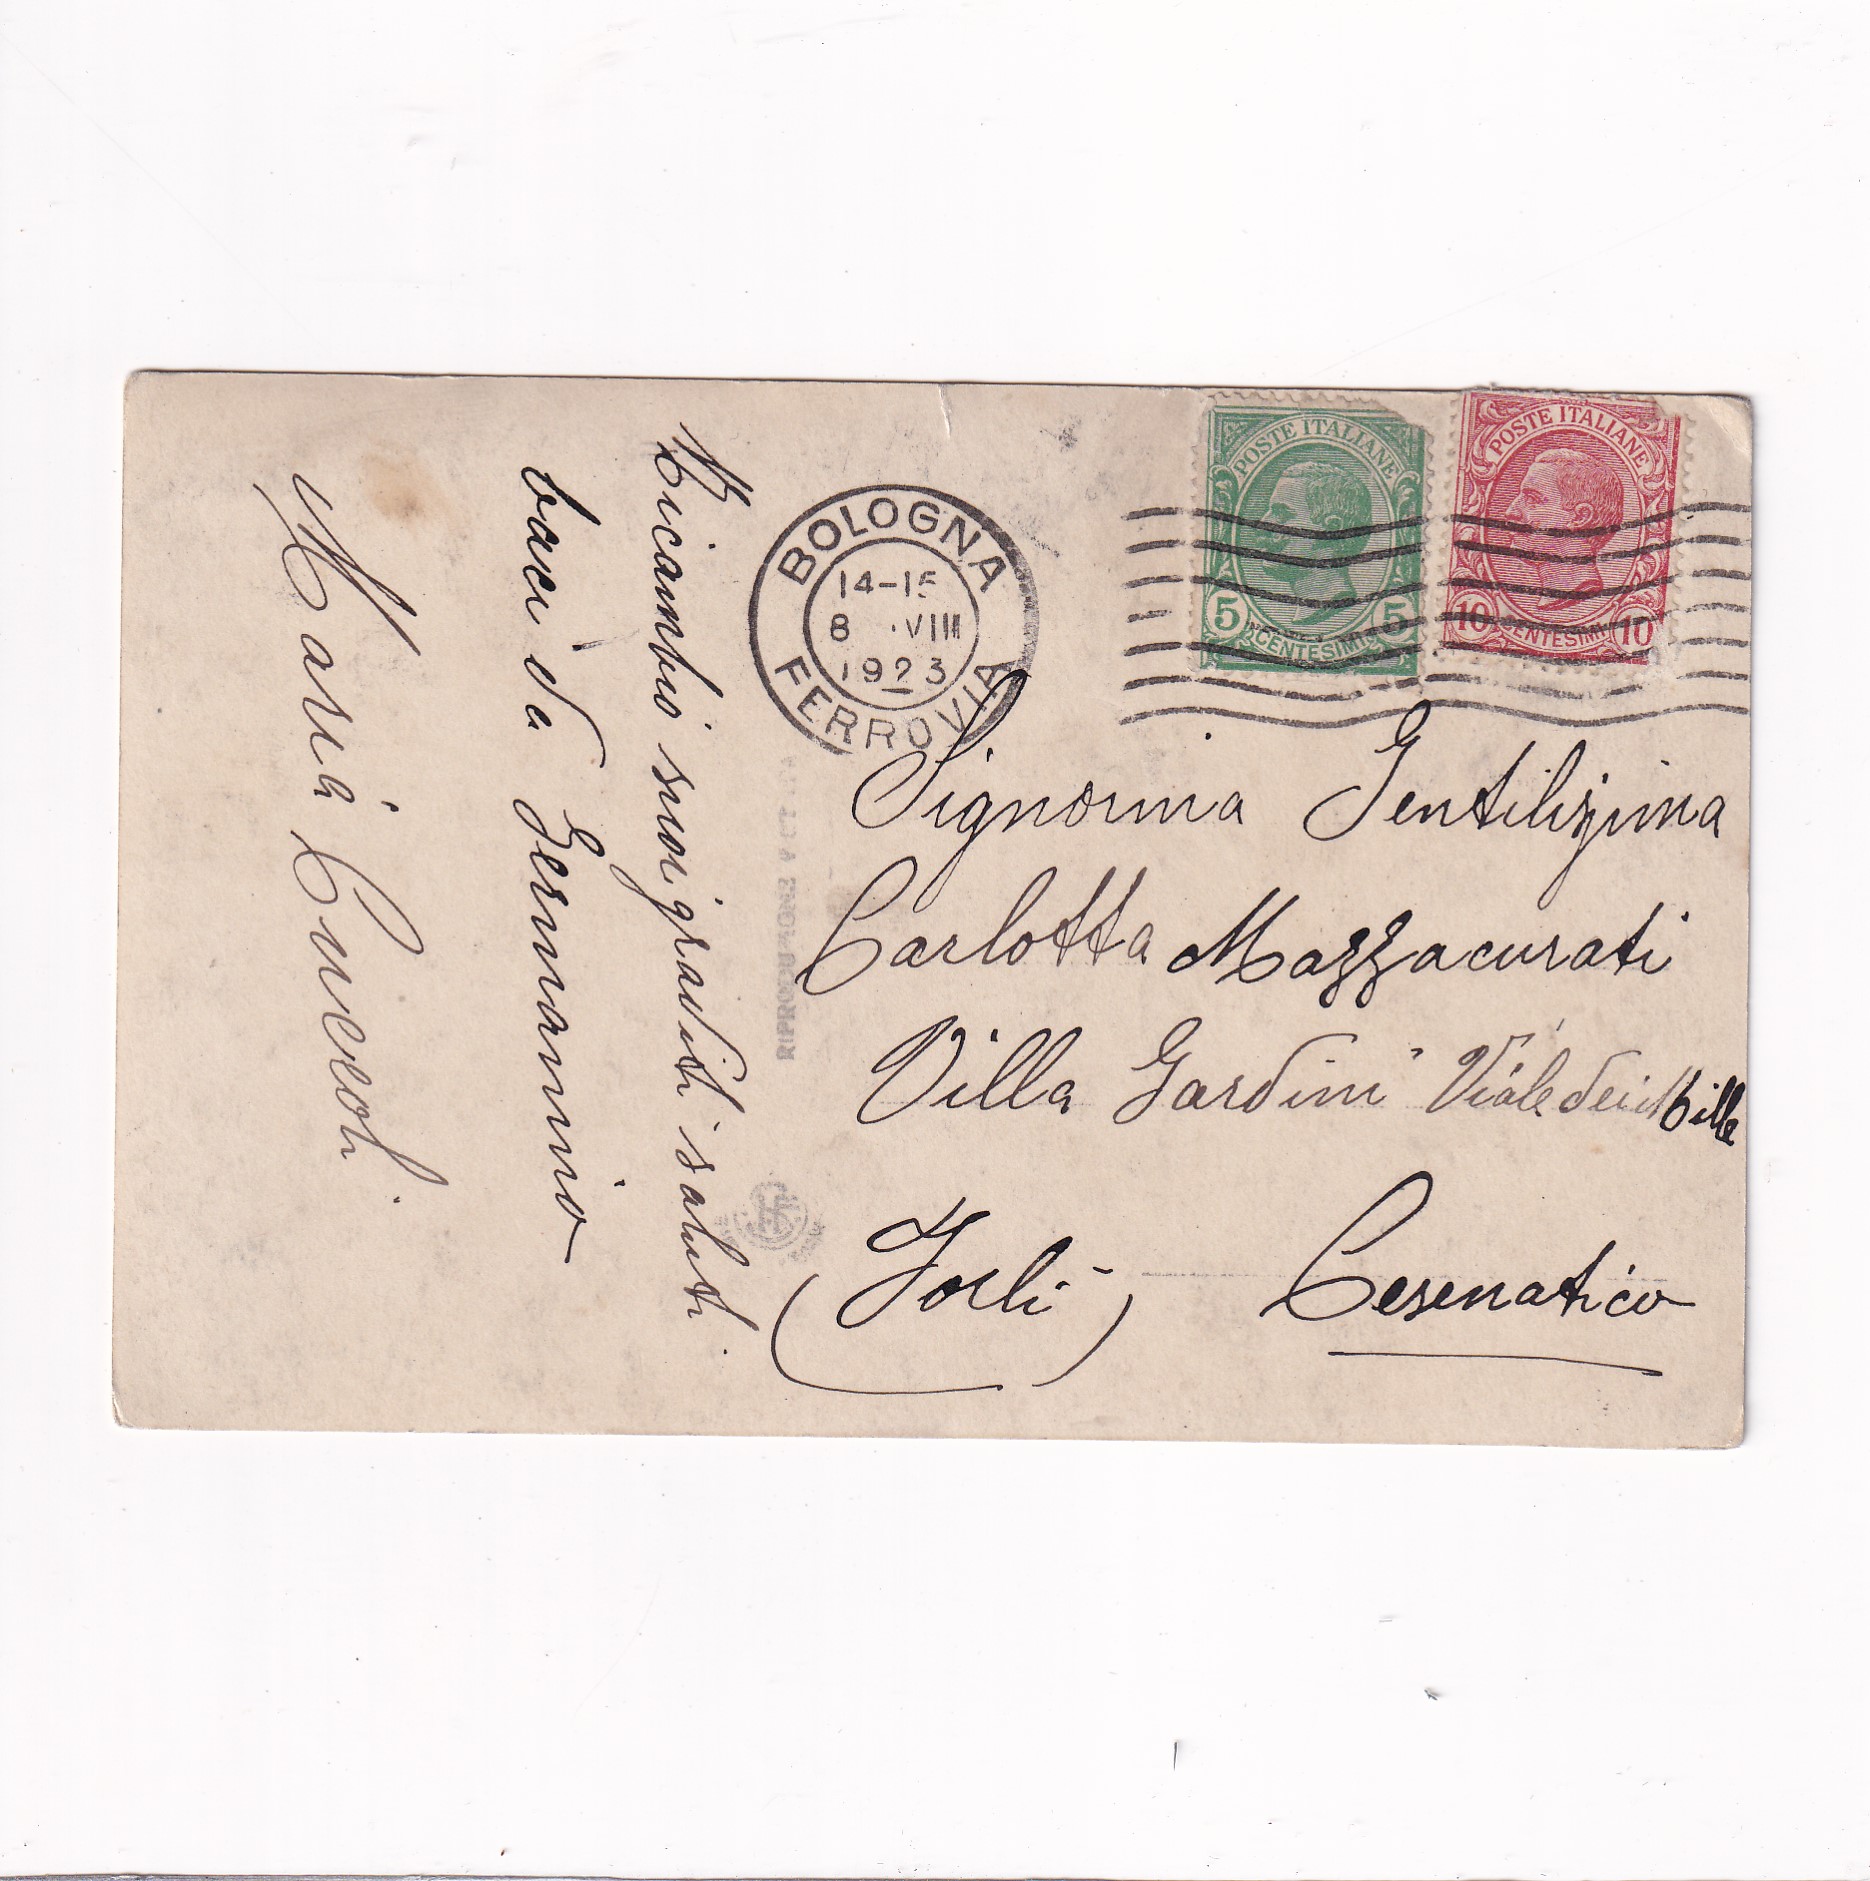 Ricambio suoi graditi saluti
baci da Germanino
Maria
BOLOGNA
14-15
8 VIII
1923
FERROVIA
POSTE ITALIANE
5 CENTESIMI 5
POSTE ITALIANE
10 CENTESIMI 10
RIPRODUZIONE VIETATA
Signorina Gentilissima
Carlotta Mazzacurati
Villa Gardini Viale dei Mille
(Forlì) Cesenatico